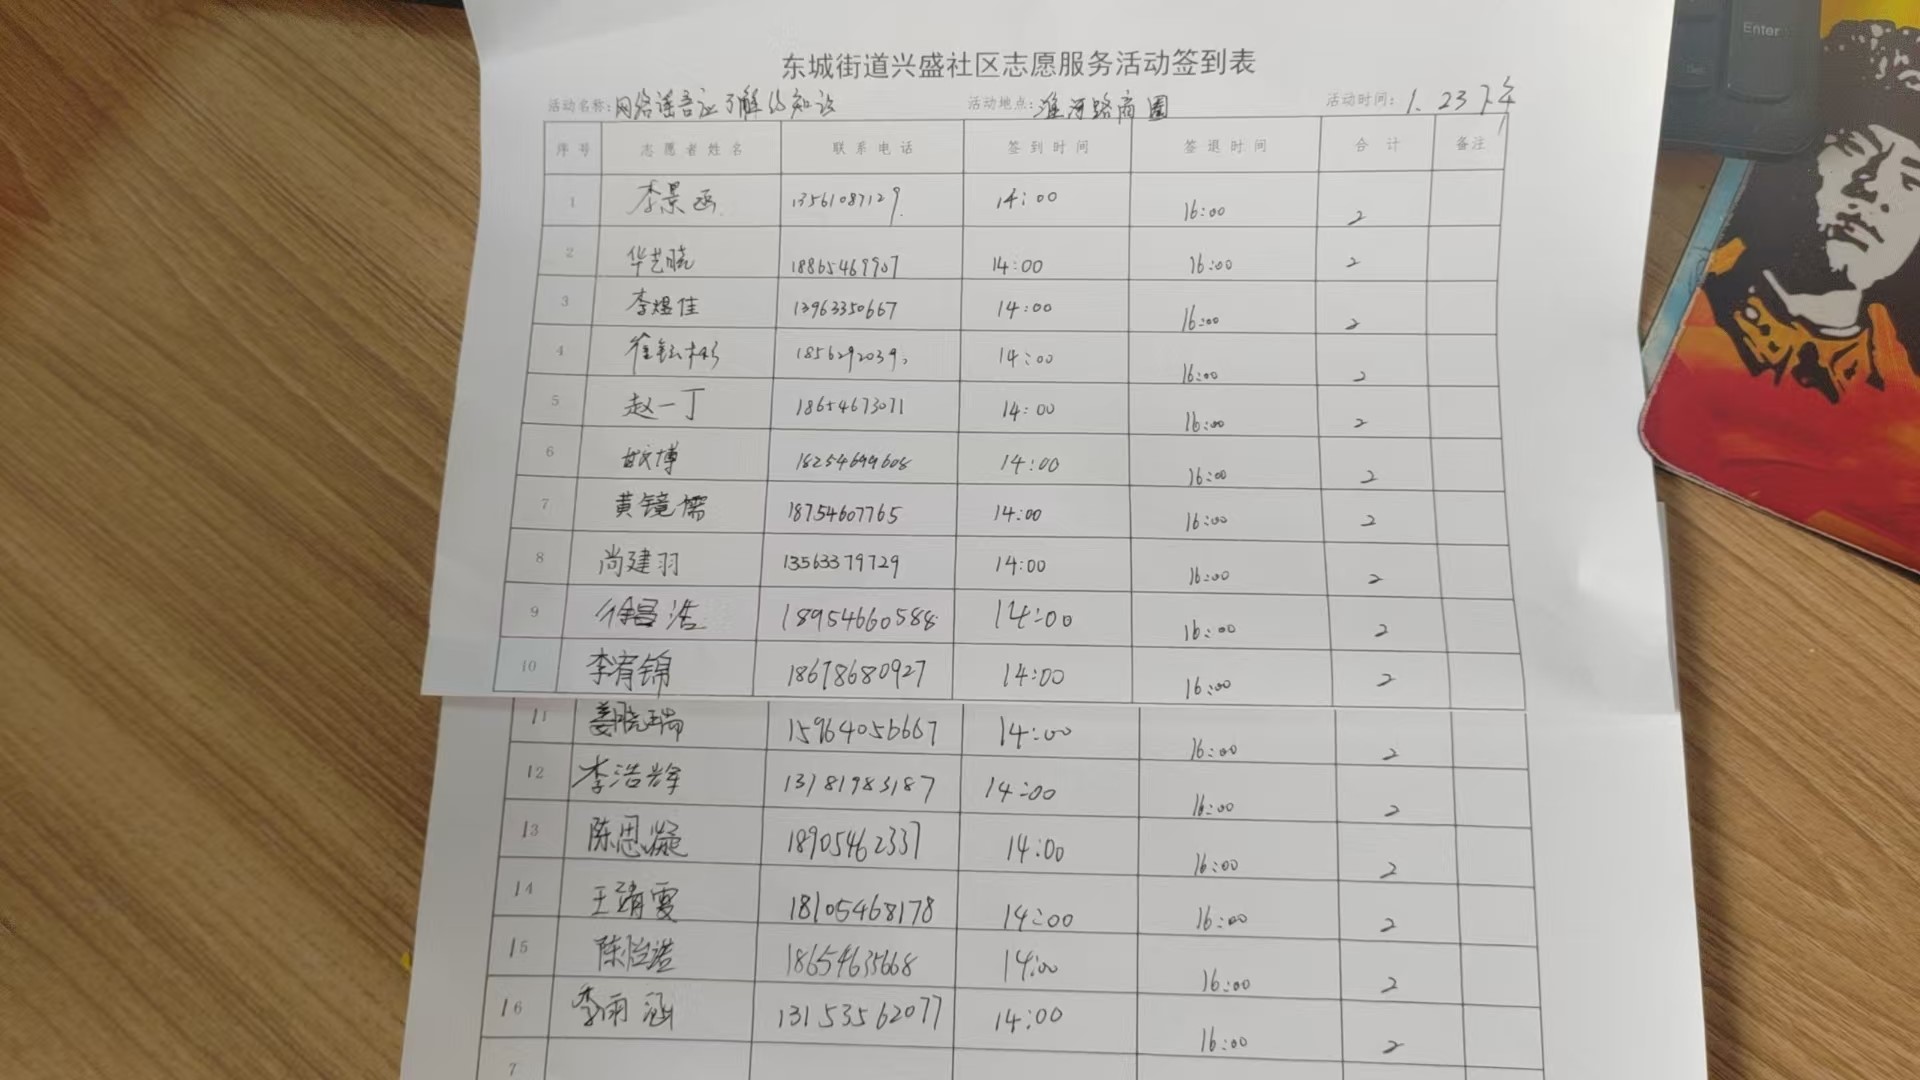 Enter
东城街道兴盛社区志愿服务活动签到表
活动名称：网络谣言应了解的知识 活动地点：淮河路商圈 活动时间：1.23下午
序号 志愿者姓名 联系电话 签到时间 签退时间 合计 备注
1 李景函 13561087129 14:00 16:00 2
2 华艺晓 18865469907 14:00 16:00 2
3 李煜佳 13963350667 14:00 16:00 2
4 14:00 16:00 2
5 赵一丁 18654673071 14:00 16:00 2
6 18254699608 14:00 16:00 2
7 黄镜儒 18754607765 14:00 16:00 2
8 尚建羽 13563379729 14:00 16:00 2
9 徐昌浩 18954660588 14:00 16:00 2
10 李宥锦 18678680927 14:00 16:00 2
11 姜晓瑞 15964056667 14:00 16:00 2
12 李浩辉 13781983187 14:00 16:00 2
13 陈思凝 18905462337 14:00 16:00 2
14 王靖雯 18105468178 14:00 16:00 2
15 18654635668 14:00 16:00 2
16 李雨涵 13153562077 14:00 16:00 2
7